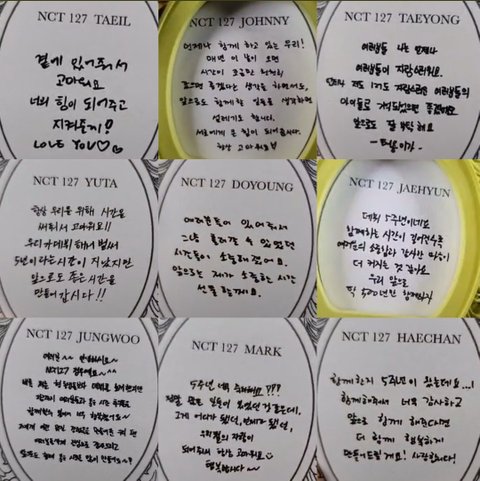 NCT 127 TAEIL
곁에 있어줘서
고마워요
너의 힘이 되어주고
지켜줄게!
LOVE YOU♡♡
NCT 127 JOHNNY
언제나 함께 하고 있는 우리!
매년 이 날이 오면
시간이 조금만 천천히
갔으면 좋겠다는 생각을 하면서도,
앞으로도 함께할 일들을 생각하면
설레기도 합니다.
서로에게 큰 힘이 되어줍시다.
항상 고마워요♥
NCT 127 TAEYONG
여러분들 나는 언제나
여러분들이 자랑스러워요.
저도 여러분들의
기억되었으면 좋겠어요
앞으로도 잘 부탁해요
-태용이가-
NCT 127 YUTA
항상 우리를 위해 시간을
써줘서 고마워요!!
우리가 데뷔해서 벌써
5년이라는 시간이 지났지만
앞으로도 좋은 시간을
만들어갑시다!!
NCT 127 DOYOUNG
여러분들이 있어줘서
그냥 흘려갈 수 있었던
시간들이 소중해졌어요.
앞으로는 제가 소중한 시간
선물할게요.
NCT 127 JAEHYUN
데뷔 5주년이네요
함께하는 시간이 길어질수록
여러분의 소중함과 감사한 마음이
더 커지는 것 같아요
우리 앞으로
딱 500년만 함께하자
NCT 127 JUNGWOO
여러분 ^^ 안녕하세요~
NCT127 정우예요~
NCT 127 MARK
5주년 너무 축하해요???
정말 많은 일들이 있었던 것 같은데.
그게 어디가 됐던, 언제가 됐던,
우리들의 자랑이
되어줘서 항상 고마워요☺
행복합시다~
NCT 127 HAECHAN
함께한지 5주년이 왔는데요...!
함께해줘서 너무 감사하고
앞으로 함께 해준다면
더 함께 행복하게
만들어드릴게요! 사랑합니다!